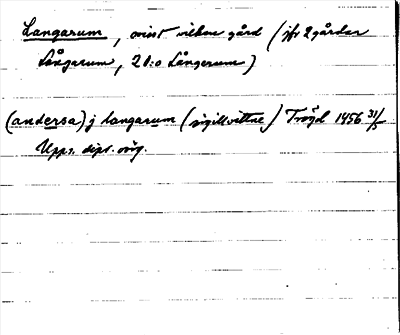 Langarum, ovisst vilken gård (jfr 2 gårdar
Långarum, 20:o Långerum)
(andersa) j langarum (sigillvittne) Tröjd 1456 31/5
Upps. dipl. orig.